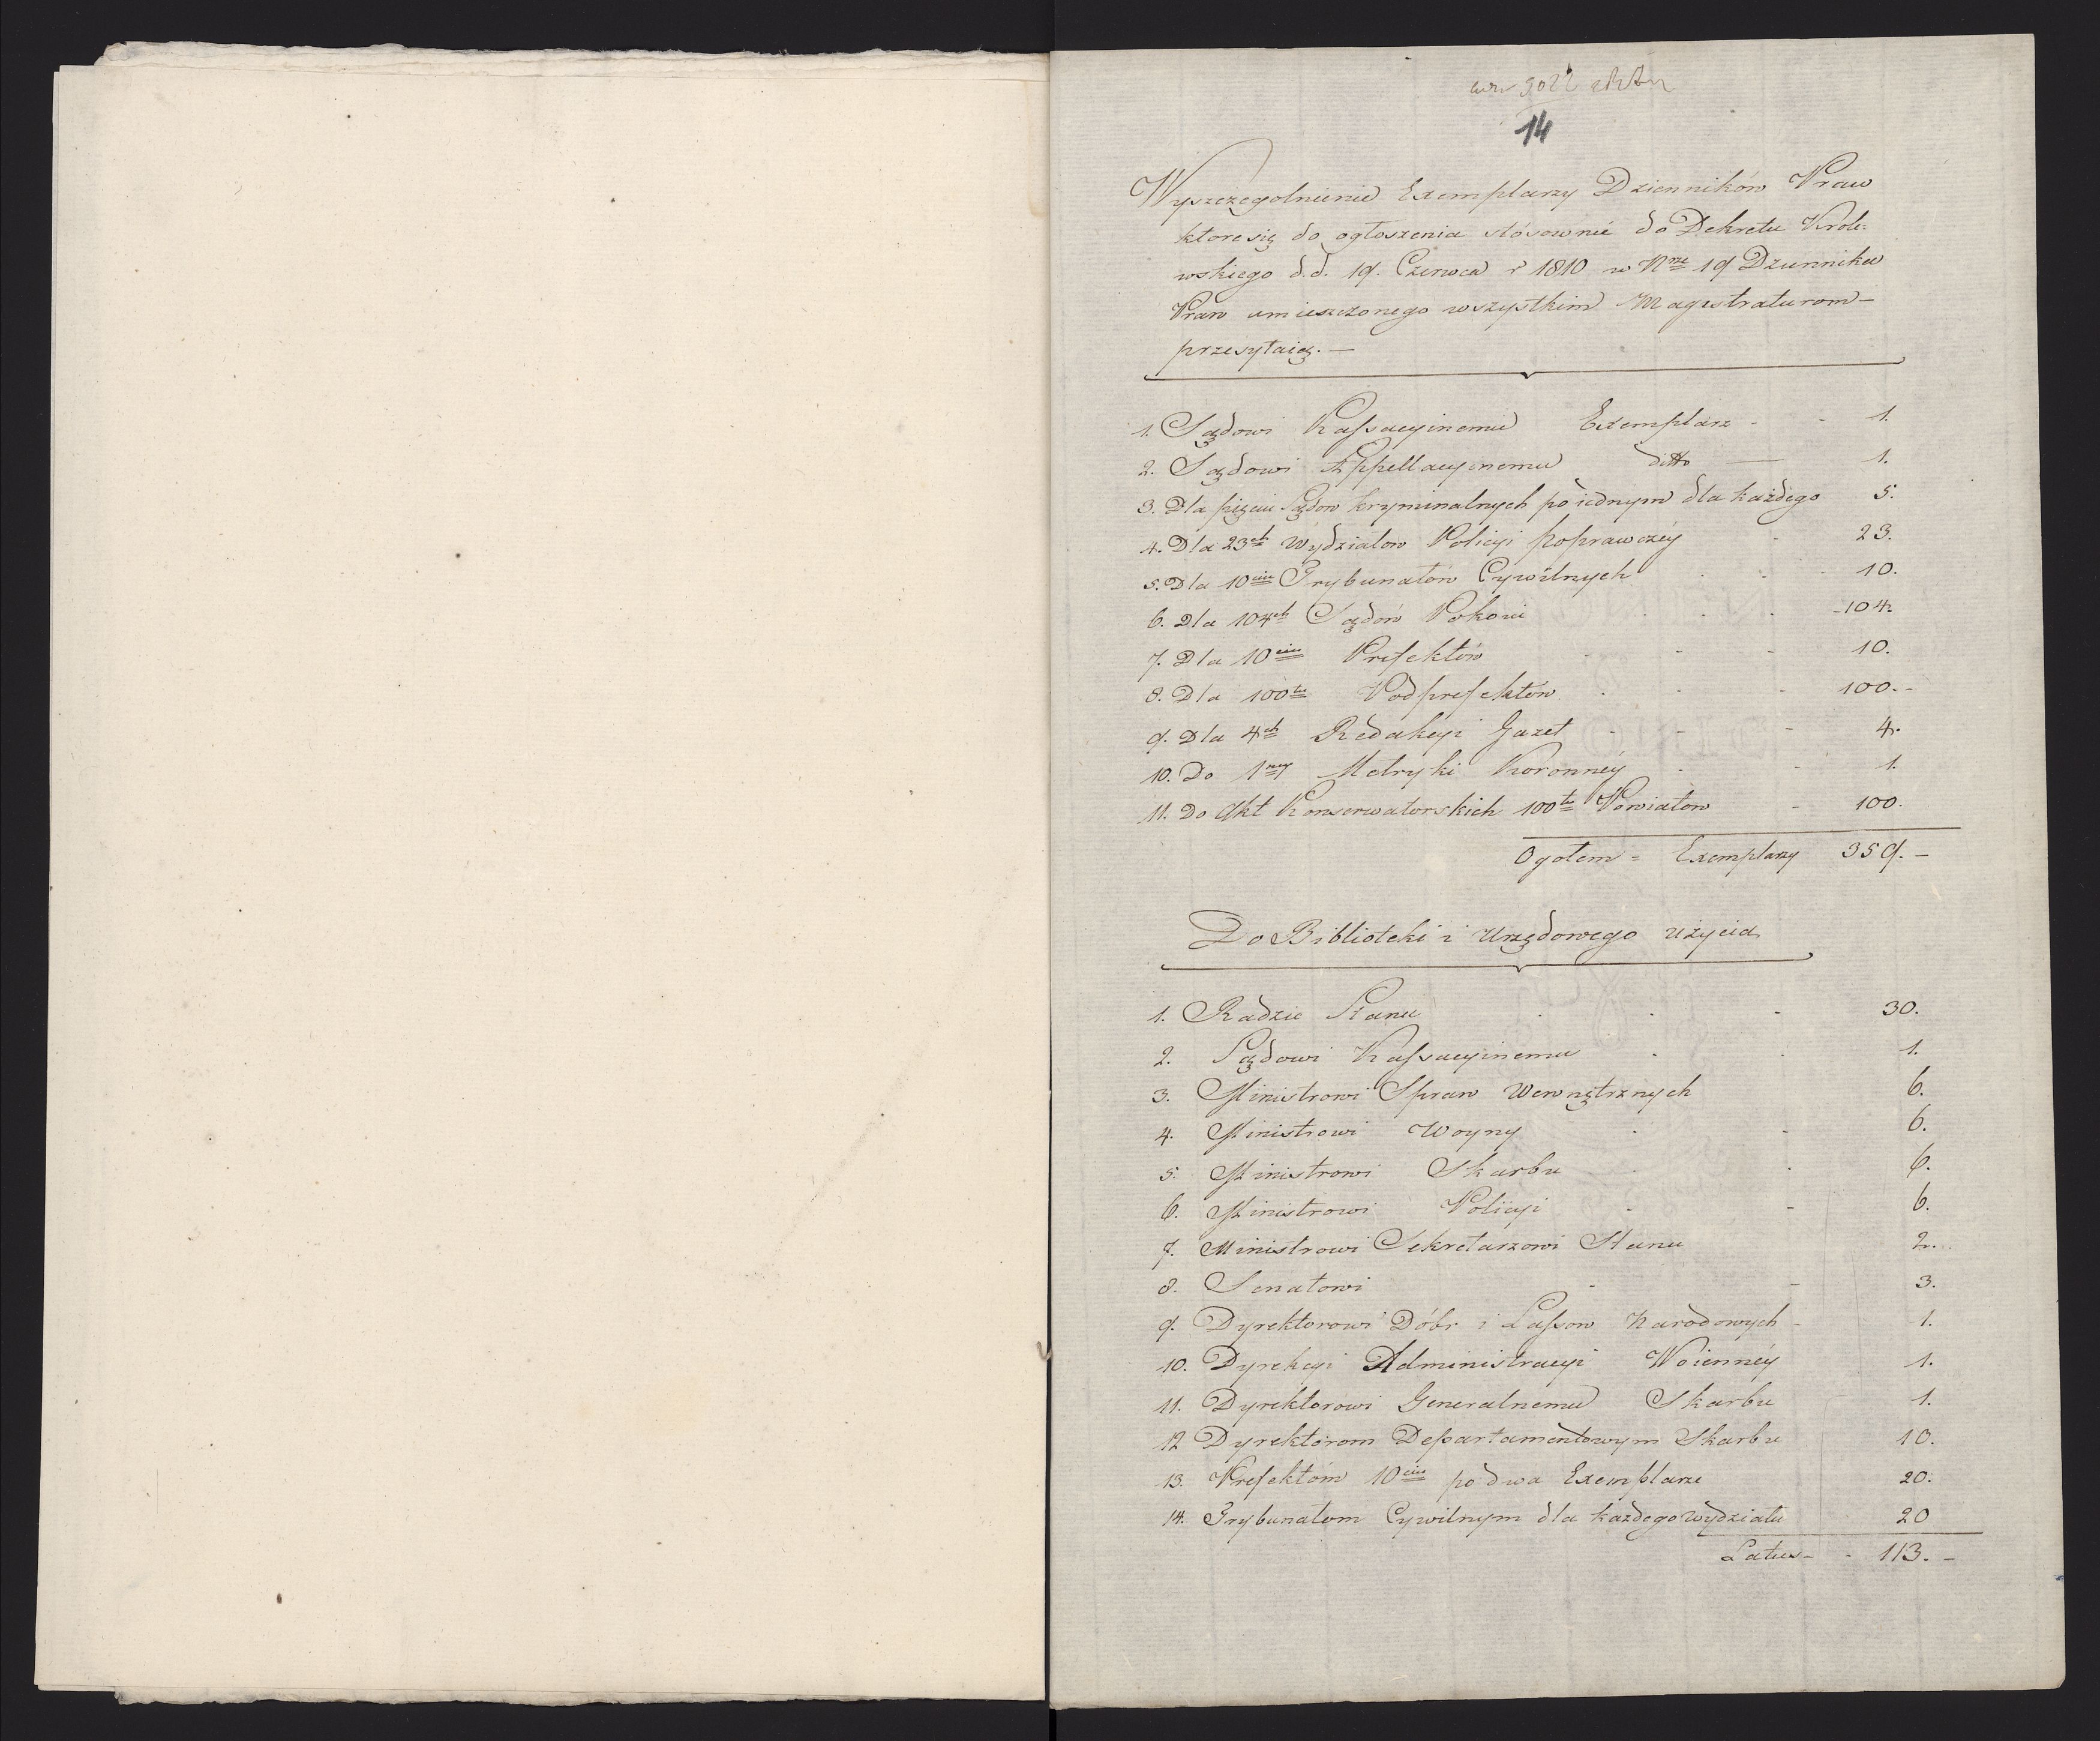 14
Wyszczegolnienie Exemplarzy Dzienników Praw
ktore się do ogłoszenia stósownie do Dekretu Krole=
wskiego d.d. 19. Czerwca r 1810 w Nrze 19 Dziennika
Praw umieszczonego wszystkim Magistraturom –
przesyłaią. –
1. Sądowi Kassacyinemu Exemplarz - - 1.
2. Sądowi Appellacyinemu ditto — 1.
3. Dla pięciu Sądow kryminalnych po iednym dla każdego 5.
4. Dla 23ch Wydziałow Policyi poprawczéy - 23.
5. Dla 10ciu Trybunałów Cywilnych - - - 10.
6. Dla 104ch Sądów Pokoiu - - - 104.
7. Dla 10ciu Prefektów - - - 10.
8. Dla 100tu Podprefektow - - - 100. -
9. Dla 4ch Redakcyi Gazet - - - 4.
10. Do 1néy Metryki Koronnéy - - 1.
11. Do Akt Konserwatorskich 100tu Powiatow - 100.
Ogołem = Exemplarzy 359. –
Do Biblioteki i Urzędowego użycia
1. Radzie Stanu - - - 30.
2. Sądowi Kassacyinemu - - 1.
3. Ministrowi Spraw Wewnętrznych 6.
4. Ministrowi Woyny - - 6.
5. Ministrowi Skarbu - - 6.
6. Ministrowi Policyi - - 6.
7. Ministrowi Sekretarzowi Stanu 2.
8. Senatowi - - 3.
9. Dyrektorowi Dóbr i Lassow Narodowych - 1.
10. Dyrekcyi Administracyi Woiennéy 1.
11. Dyrektorowi Generalnemu Skarbu 1.
12 Dyrektorom Departamentowym Skarbu 10.
13. Prefektom 10ciu po dwa Exemplarze 20.
14. Trybunałom Cywilnym dla każdego wydziału 20
Latus - - 113. –